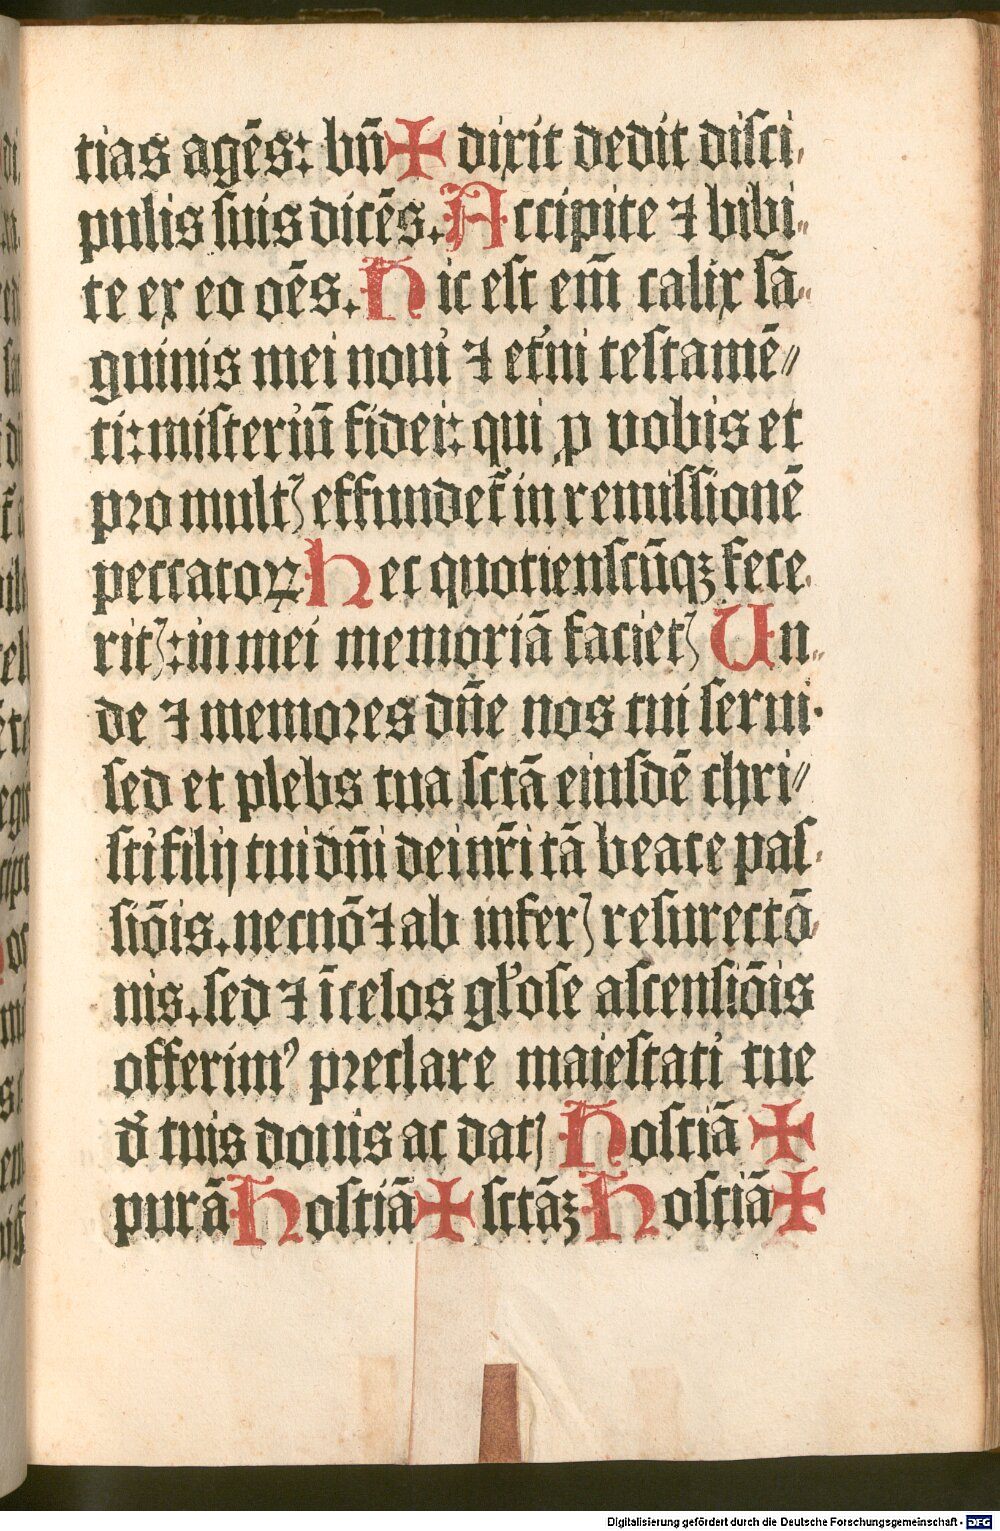 tias agēs: bn̄ ✠ dixit dedit diſci⸗
pulis ſuis dicēs. Accipite ⁊ bibi⸗
te ex eo oēs. Hic eſt em̄ calix ſā⸗
guinis mei noui ⁊ et'ni teſtamē⸗
ti: miſteriū fidei: qui ꝓ vobis et
pro multꝭ effundet᷑ in remiſſionē
peccatoꝝ Hec quotienſcūqꝫ fece⸗
ritꝭ: in mei memoriā facietꝭ Un⸗
de ⁊ memores dn̄e nos tui ſerui·
ſed et plebs tua ſctā eiuſdē chri⸗
ſti filij tui dn̄i dei nr̄i tā beate paſ⸗
ſiōis. necnō ⁊ ab inferꝭ reſurectō⸗
nis. ſed ⁊ ī celos gl'oſe aſcenſiōis
offerimꝰ preclare maieſtati tue
d̄ tuis donis ac datꝭ Hoſtiā ✠
purā Hoſtiā ✠ ſctāꝫ Hoſtiā ✠
Digitalisierung gefördert durch die Deutsche Forschungsgemeinschaft - DFG